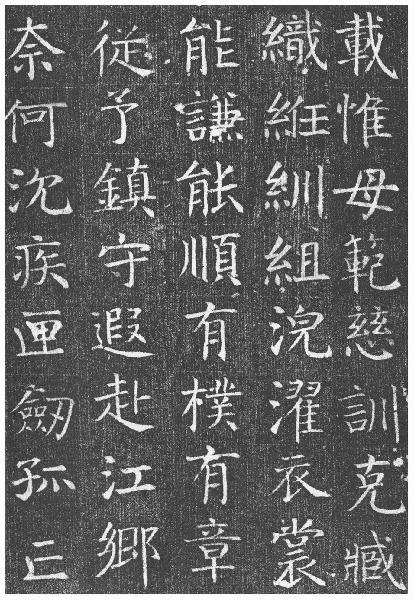 載惟母範慈訓克臧
織紝紃組浣濯衣裳
能謙能順有樸有章
從予鎮守遐赴江鄉
奈何沉疾匣劒孤亡